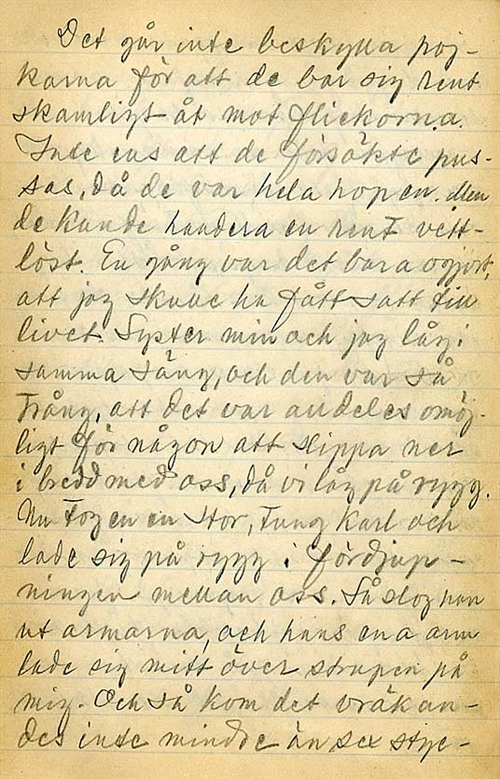 Det går inte beskylla poj-
karna för att de bar sig rent
skamligt åt mot flickorna.
Inte ens att de försökte pus-
sas, då de var hela hopen. Men
de kunde handera en rent vett-
löst. En gång var det bara ogjort,
att jag skulle ha fått satt till
livet. Syster min och jag låg i
samma säng, och den var så
trång, att det var alldeles omöj-
ligt för någon att slippa ner
i bredd med oss, då vi låg på rygg.
Nu tog en en stor, tung karl och
lade sig på rygg i fördjup-
ningen mellan oss. Så slog han
ut armarna, och hans ena arm
lade sig mitt över strupen på
mig. Och så kom det vräkan-
des inte mindre än sex styc-